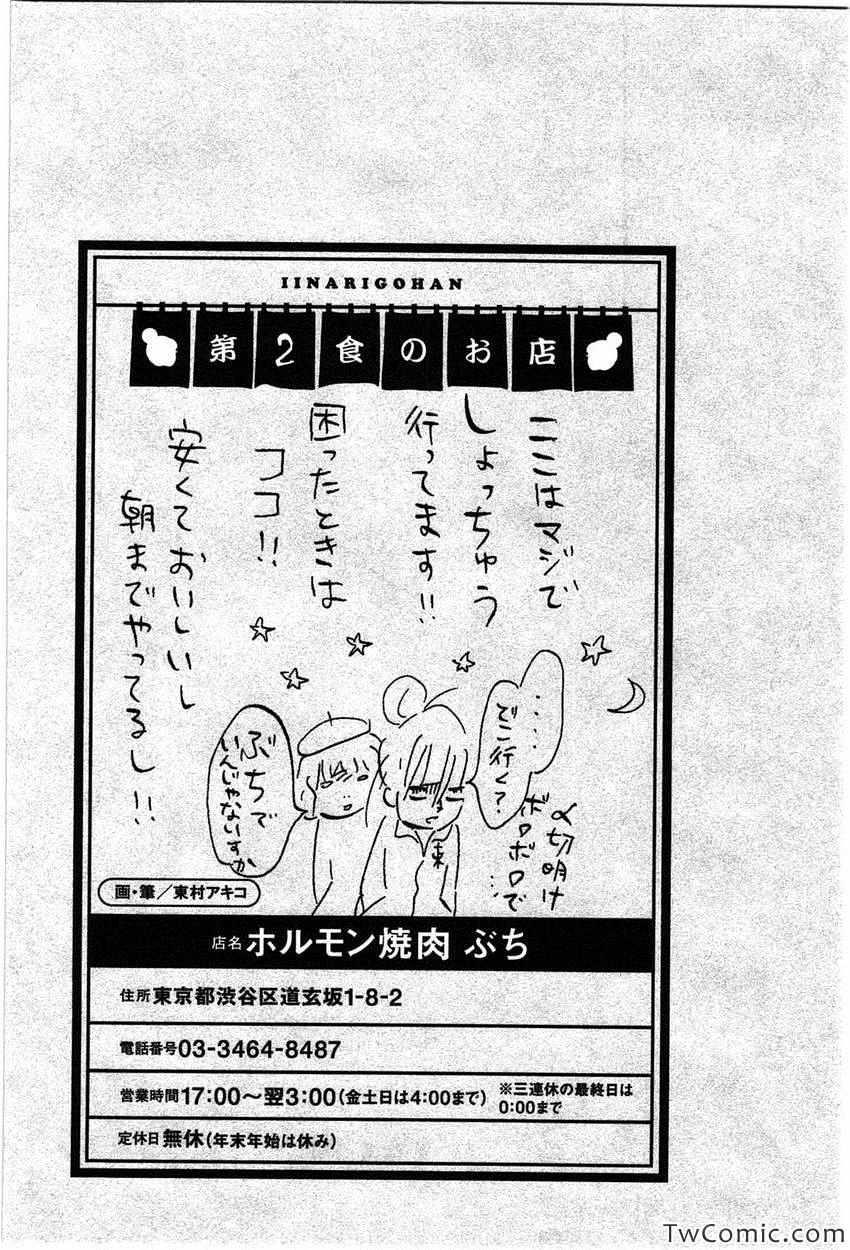 IINARIGOHAN
第2食のお店
ここはマジで
しょっちゅう
行ってます!!
困ったときは
ココ!!
安くておいしいし
朝までやってるし!!
‥‥
どこ行く?
〆切明け
ボロボロで…
ぶちで
いんじゃないすか
東
画・筆／東村アキコ
店名 ホルモン焼肉 ぶち
住所 東京都渋谷区道玄坂1-8-2
電話番号 03-3464-8487
営業時間 17:00〜翌3:00(金土日は4:00まで) ※三連休の最終日は
0:00まで
定休日 無休(年末年始は休み)
TwComic.com